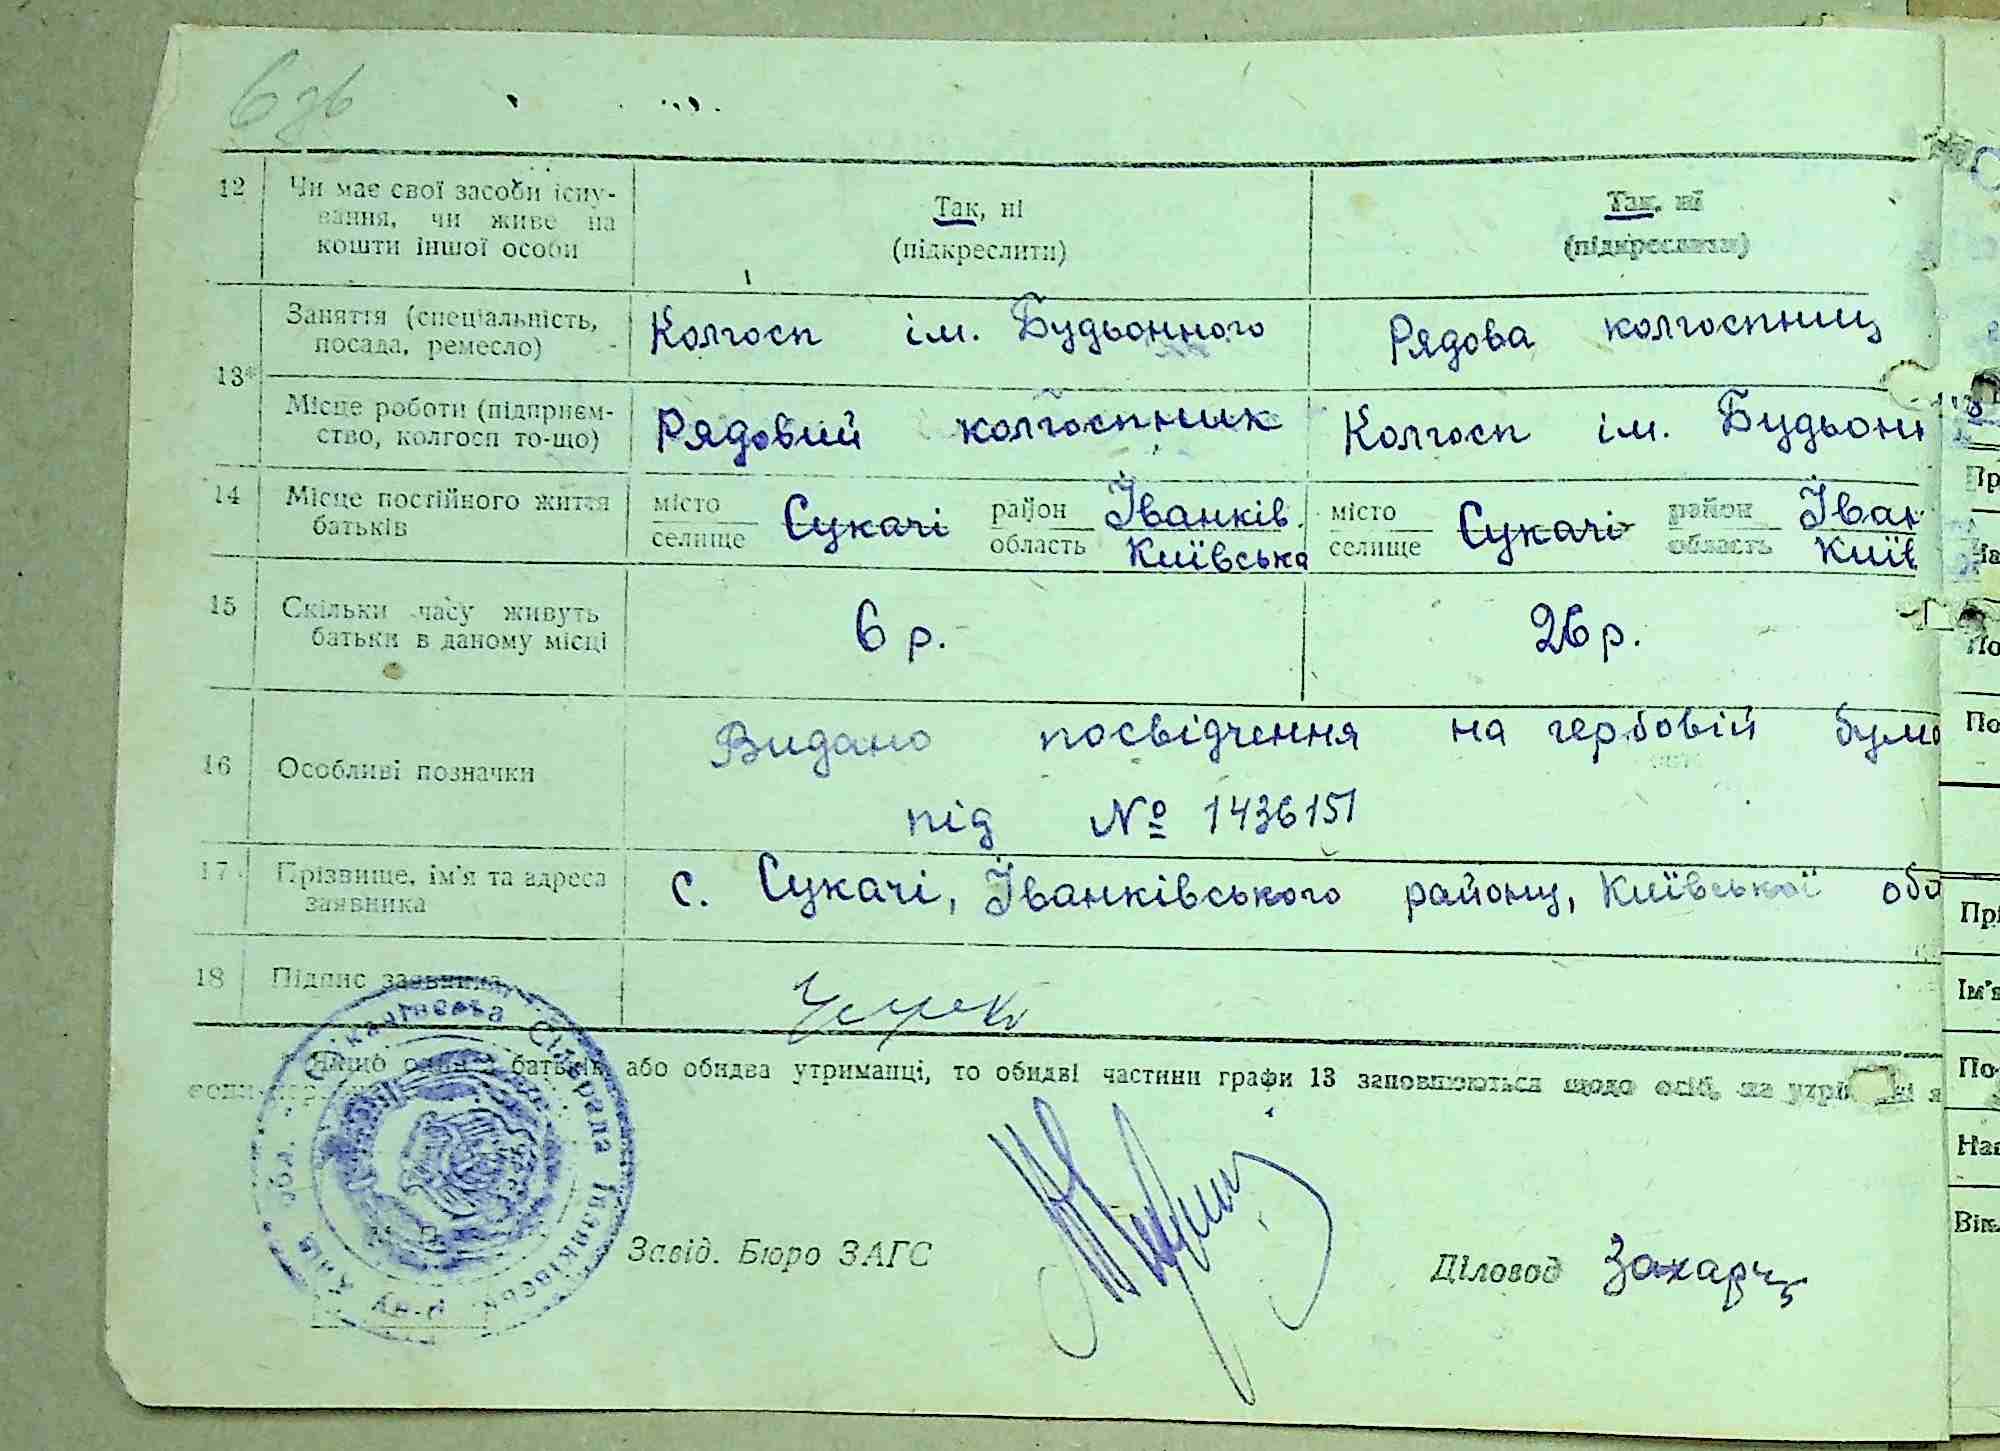 6зв
12 Чи має свої засоби існу- Так, ні Так, ні
вання, чи живе на (підкреслити) (підкреслити)
кошти іншої особи
Заняття (спеціальність, Колгосп ім. Будьонного Рядова колгоспниц
посада, ремесло)
13*
Місце роботи (підприєм- Рядовий колгоспник Колгосп ім. Будьонн
ство, колгосп то-що)
14 Місце постійного життя місто Сукачі район Іванків. місто Сукачі район Іван
батьків селище область Київська селище область Київ
15 Скільки часу живуть 6 р. 26 р.
батьки в даному місці
16 Особливі позначки Видано посвідчення на гербовій бума
під № 1436151
17 Прізвище, ім'я та адреса с. Сукачі, Іванківського району, Київської обл
заявника
18 Підпис заявника
* Якщо один з батьків або обидва утриманці, то обидві частини графи 13 заповнюються щодо осіб, на
Сільрада Іванківськ. р-ну Київ. обл.
Завід. Бюро ЗАГС Діловод Захарч
Пр
По
По
Прі
Ім'я
По
Нац
Вік